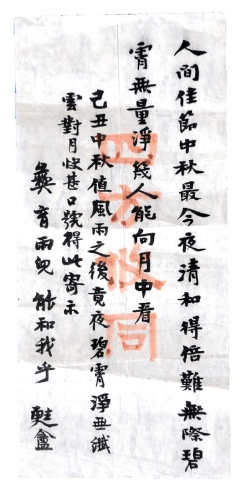 人間佳節中秋最今夜清和得倍難無際碧
霄無量淨幾人能向月中看
己丑中秋值風雨之後竟夜碧霄淨毋纖
雲對月快甚口號得此寄示
彝育兩兒 能和我乎 甦盦
四方攸同